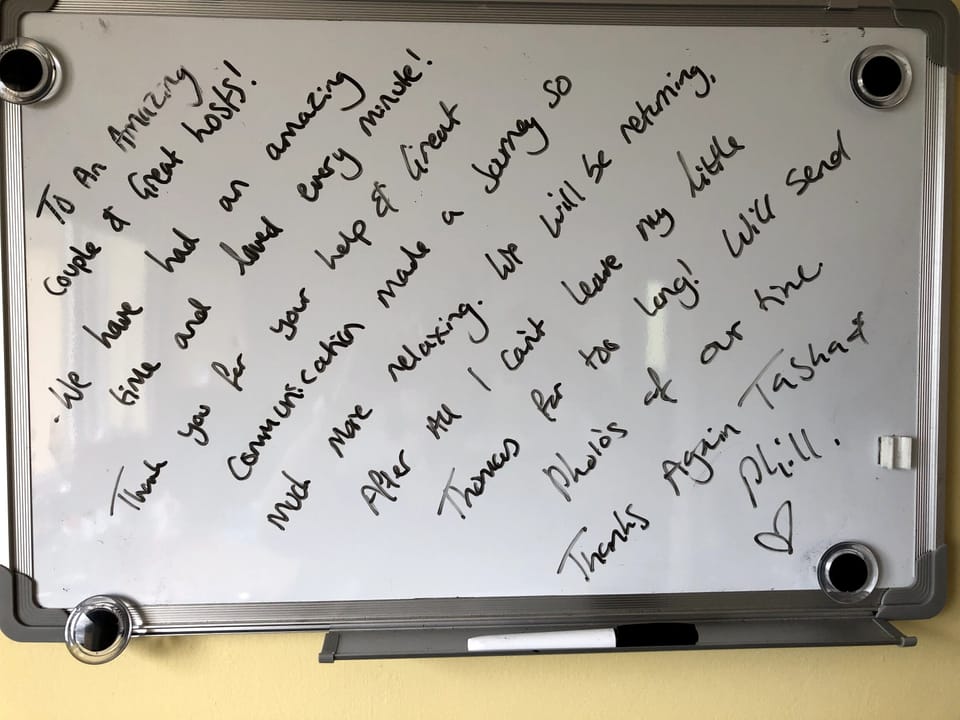 To An Amazing
Couple & Great hosts!
. We have had an amazing
time and loved every minute!
Thank you for your help & Great
Communication made a Journey so
Much More relaxing. We will be returning,
After All I can't leave my little
Thomas for too long! Will send
Photo's of our time.
Thanks Again Tasha &
Phill.
♡